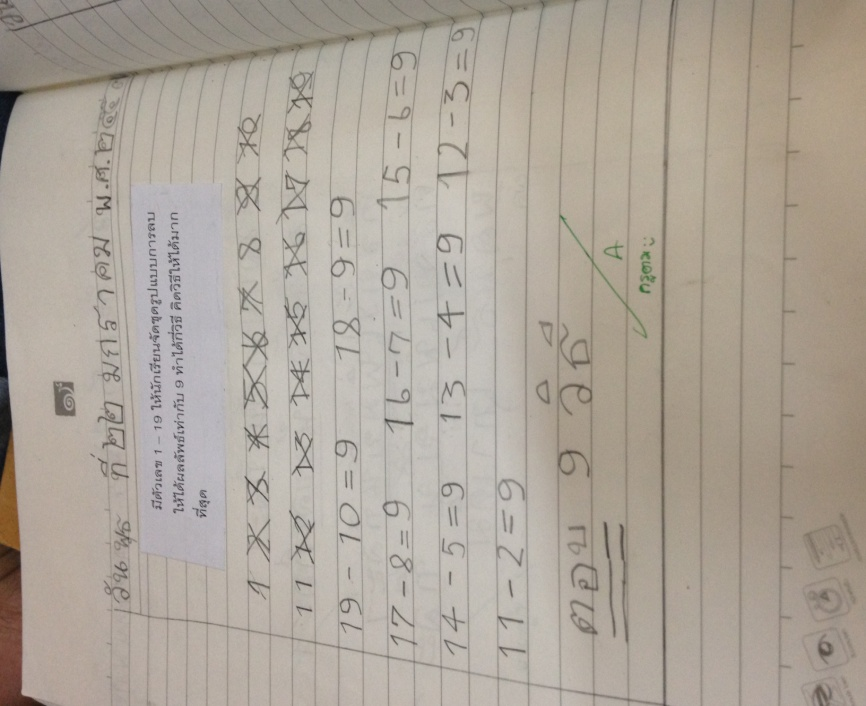 ๑
วัน พุธ ที่ ๒๒ มกราคม พ.ศ.
มีตัวเลข 1 – 19 ให้นักเรียนจัดชุดรูปแบบการลบ
ให้ได้ผลลัพธ์เท่ากับ 9 ทำได้กี่วิธี คิดวิธีให้ได้มาก
ที่สุด
1 2 3 4 5 6 7 8 9 10
11 12 13 14 15 16 17 18 19
19 - 10 = 9 18 - 9 = 9
17 - 8 = 9 16 - 7 = 9 15 - 6 = 9
14 - 5 = 9 13 - 4 = 9 12 - 3 = 9
11 - 2 = 9
ตอบ 9 วิธี
A